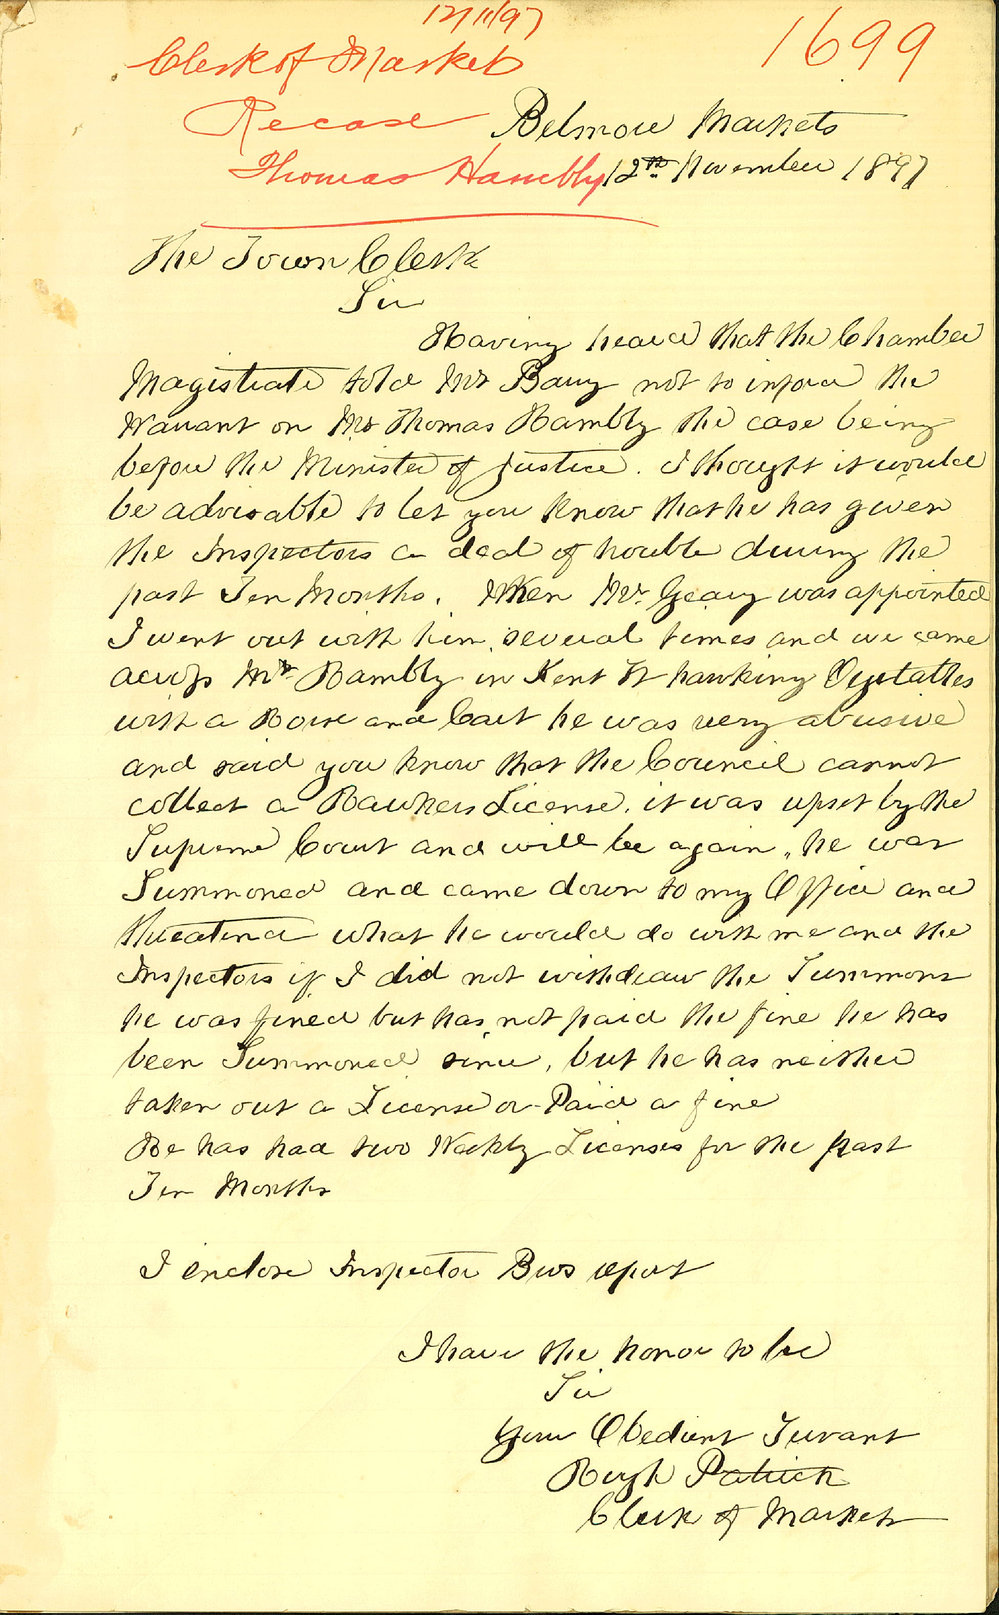 12/11/97
1699
Clerk of Markets
Re case
Thomas Hambly
Belmore Markets
12th November 1897
The Town Clerk
Sir
Having heard that the Chamber
Magistrate told Mr Barry not to inforce the
Warrant on Mr Thomas Hambly the case being
before the Minister of Justice. I thought it would
be advisable to let you know that he has given
the Inspectors a deal of trouble during the
past Ten Months. When Mr. Geary was appointed
I went out with him several times and we came
across Mr Hambly in Kent St hawking Vegtatles
with a Horse and Cart he was very abusive
and said you know that the Council cannot
collect a Hawkers License. it was upset by the
Supreme Court and will be again, he was
Summoned and came down to my Office and
threatened what he would do with me and the
Inspectors if I did not withdraw the Summons
he was fined but has not paid the fine he has
been Summoned since, but he has neither
taken out a License or Paid a fine
He has had two Weekly Licenses for the past
Ten Months
I enclose Inspector report
I have the honor to be
Sir
Your Obedient Servant
Hugh Patrick
Clerk of Markets